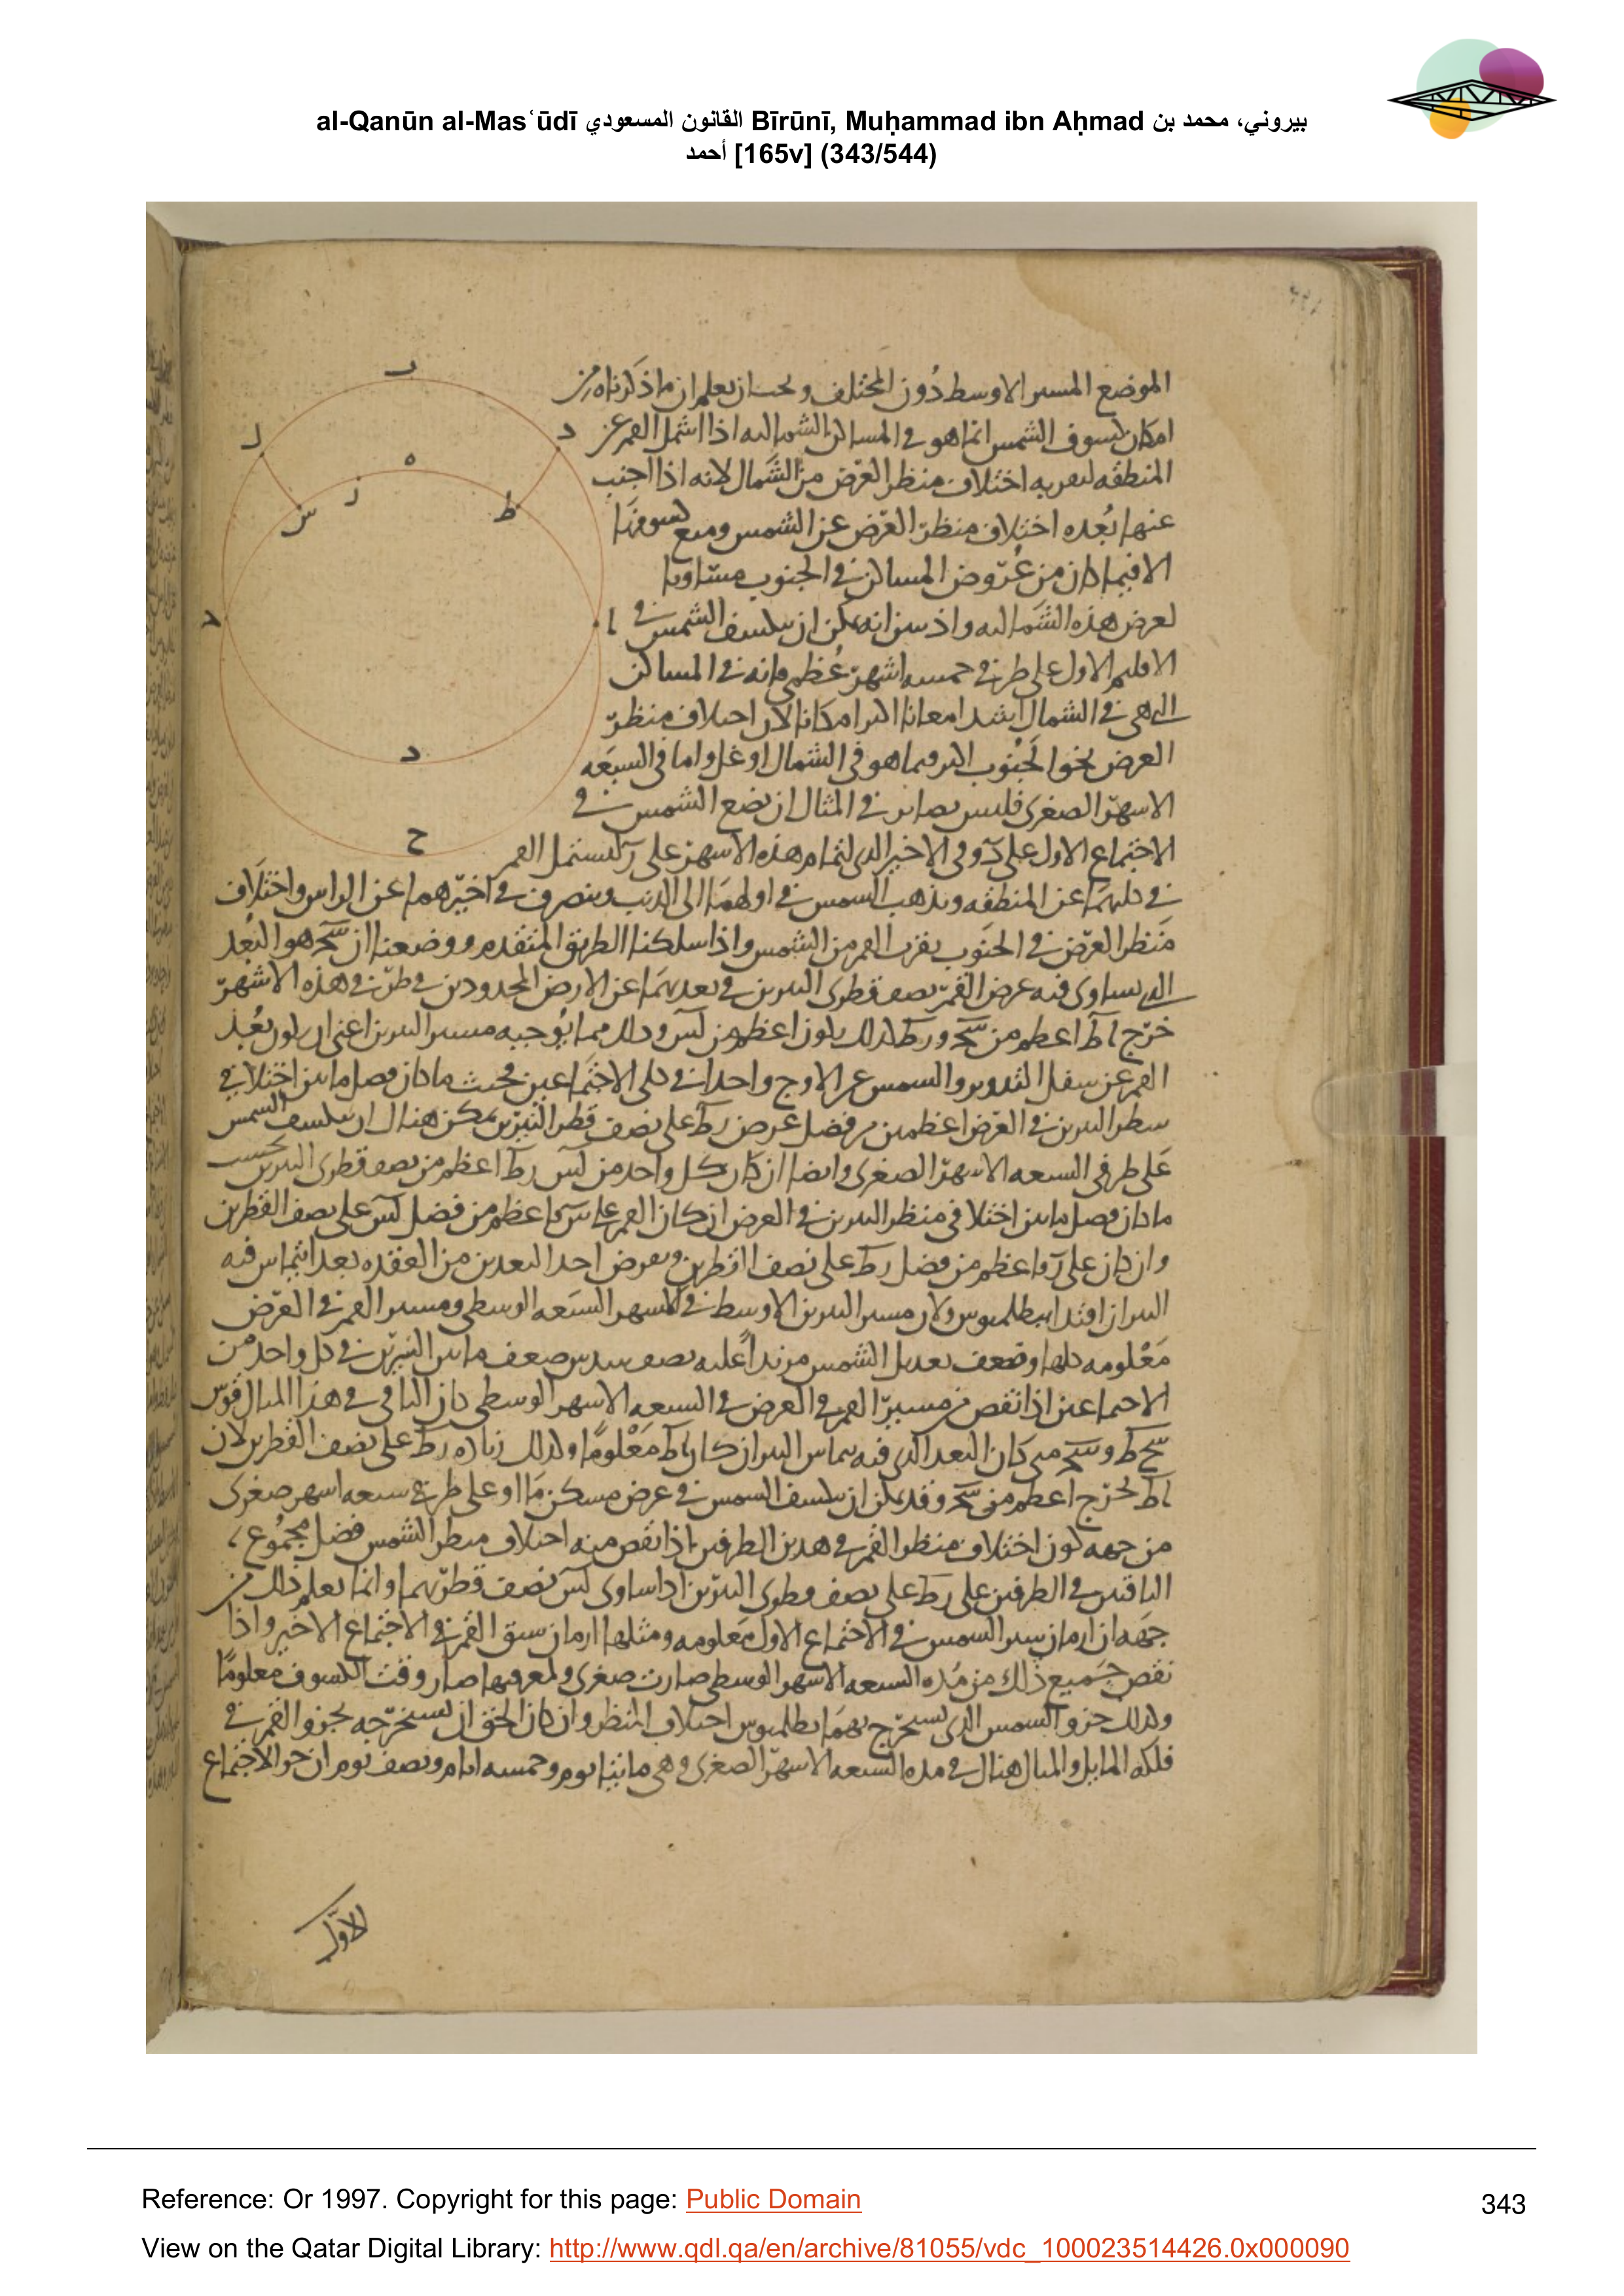 al-Qanūn al-Masʿūdī القانون المسعودي Bīrūnī, Muḥammad ibn Aḥmad بيروني، محمد بن
أحمد [165v] (343/544)
الموضع المسير الاوسط دون المختلف ويجب ان يعلم ان ما ذكرناه من
امكان كسوف الشمس انما هو في المساكن الشماليه اذا اشمل القمر عن
المنطقه لتقريبه اختلاف منظر العرض من الشمال لانه اذا اجنب
عنها بعده اختلاف منظر العرض عن الشمس ومنع كسوفها
الا فيما كان من عروض المساكن في الجنوب مساويا
لعرض هذه الشماليه واذ تبين انه يمكن ان ينكسف الشمس في
الاقليم الاول على طرفي خمسه اشهر عظمى فانه في المساكن
التي هي في الشمال اشد امعانا اكثر امكانا لان اختلاف منظر
العرض نحو الجنوب اكثر فيما هو في الشمال اوغل واما في السبعه
الاشهر الصغرى فليس بضائر في المثال ان نضع الشمس في
الاجتماع الاول على د وفي الاخير الذي لتمام هذه الاشهر على ليشتمل القمر
في كليهما عن المنطقه وتذهب الشمس في اولهما الى الذنب وينصرف في اخيرهما عن الراس واختلاف
منظر العرض في الجنوب يقرب القمر من الشمس واذا سلكنا الطريق المتقدم ووضعنا ان هو البعد
الذي يساوي فيه عرض القمر نصف قطري النيرين في بعديهما عن الارض المحدودين في طرفي هذه الاشهر
خرج اط اعظم من وكذلك يكون اعظم من لس وذلك مما يوجبه مسير النيرين اعني ان يكون بعد
القمر عن سفل التدوير والشمس عن الاوج واحدا في كلى الاجتماعين فحيث ما كان فضل ما بين اختلافي
منظر النيرين في العرض اعظم من فضل عرض رط على نصف قطر النيرين يمكن هناك ان ينكسف الشمس
على طرفي السبعه الاشهر الصغرى وايضا ان كان كل واحد من لس رط اعظم من نصف قطري النيرين بحسب
ما كان فضل ما بين اختلافي منظر النيرين في العرض ان كان القمر على اعظم من فضل لس على نصف القطرين
وان كان على اعظم من فضل رط على نصف القطرين ونفرض احد البعدين من العقده بعدا يتماس فيه
النيران اقتدا ببطلميوس ولان مسير النيرين الاوسط في الاشهر السبعه الوسطى ومسير القمر في العرض
معلومه كلها وضعف تعديل الشمس مزيدا عليه نصف سدس ضعف ما بين النيرين في كل واحد من
الاجتماعين اذا نقص من مسير القمر في العرض في السبعه الاشهر الوسطى كان الباقي في هذا المثال قوس
ط و متى كان البعد الذي فيه يماس النيران كان اط معلوما وكذلك زياده رط على نصف القطرين لان
اط يخرج اعظم من وقد يمكن ان ينكسف الشمس في عرض مسكن ما او على طرفي سبعه اشهر صغرى
من جهه كون اختلاف منظر القمر في هذين الطرفين اذا نقص منه اختلاف منظر الشمس فضل مجموع
الباقيين في الطرفين على رط على نصف قطري النيرين اذا ساوى لس نصف قطريهما وانما يعلم ذلك من
جهه ان ازمان سير الشمس في الاجتماع الاول معلومه ومثلها ازمان سبق القمر في الاجتماع الاخير واذا
نقص جميع ذلك من مده السبعه الاشهر الوسطى صارت صغرى ولمعرفتها صار وقت الكسوف معلوما
وكذلك جزو الشمس الذي يستخرج بهما بطلميوس اختلاف المنظر وان كان الحق ان يستخرجه بجزو القمر في
فلكه المايل والمثال هناك في مده السبعه الاشهر الصغرى وهي مائتا يوم وخمسه ايام ونصف يوم ان جزو الاجتماع
الاول
ح
د
ه
ط
س
Reference: Or 1997. Copyright for this page: Public Domain
343
View on the Qatar Digital Library: http://www.qdl.qa/en/archive/81055/vdc_100023514426.0x000090